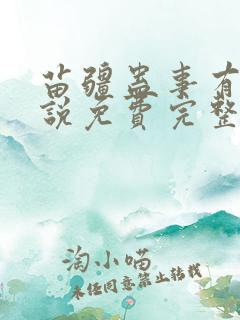 苗疆蛊事有
说免费完整
淘小喵
未经同意禁止转载